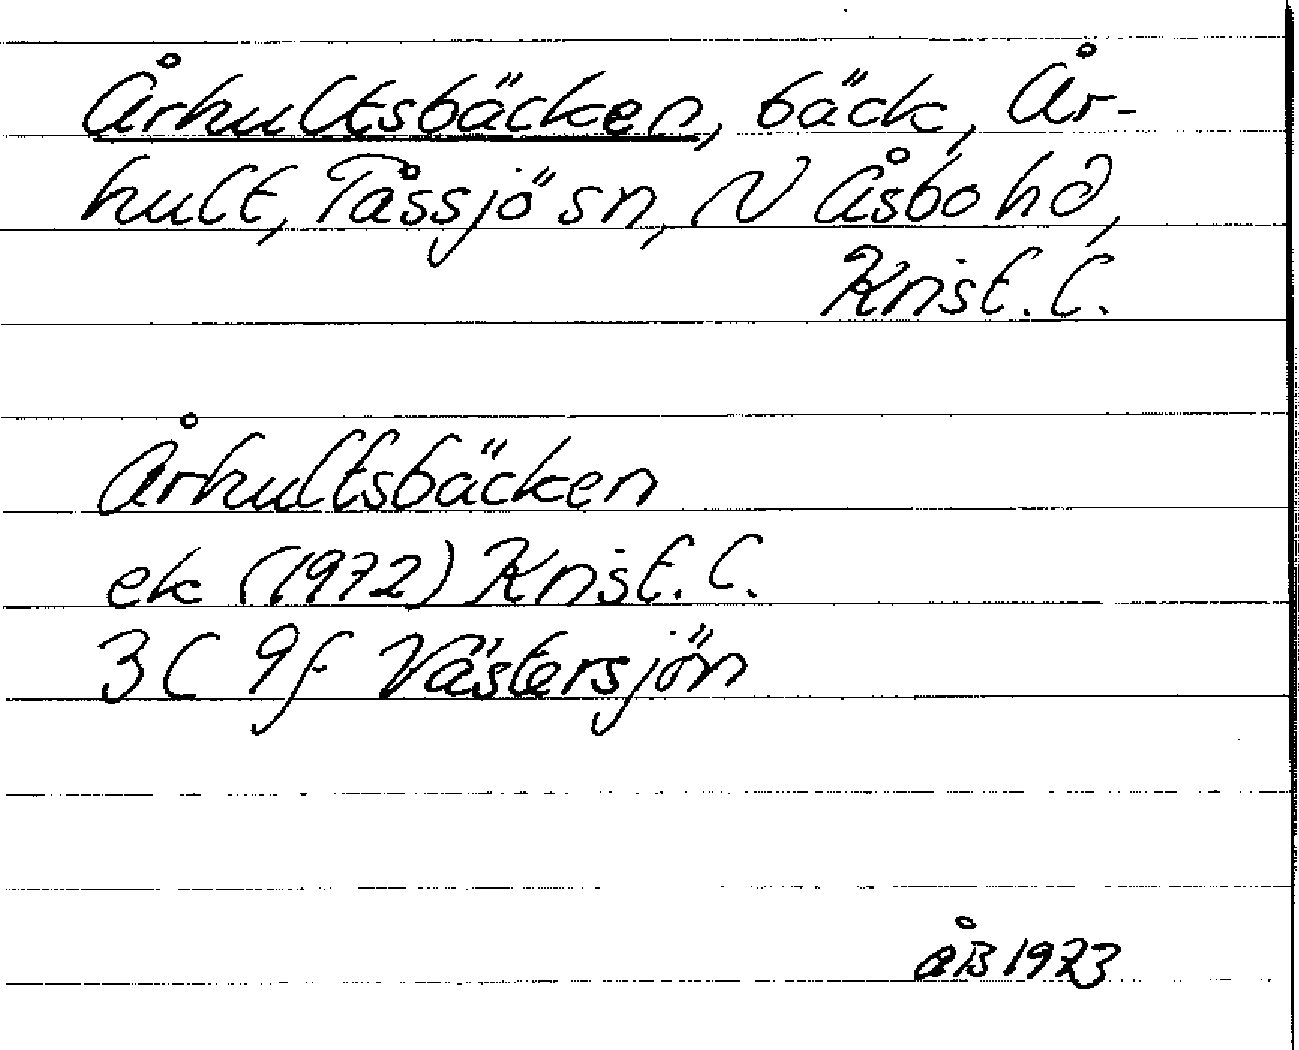 Århultsbäcken, bäck, År-
hult, Tåssjö sn, N Åsbo hd,
Krist. l.
Århultsbäcken
ek (1972) Krist. l.
3C 9f Västersjön
ÅB 1973